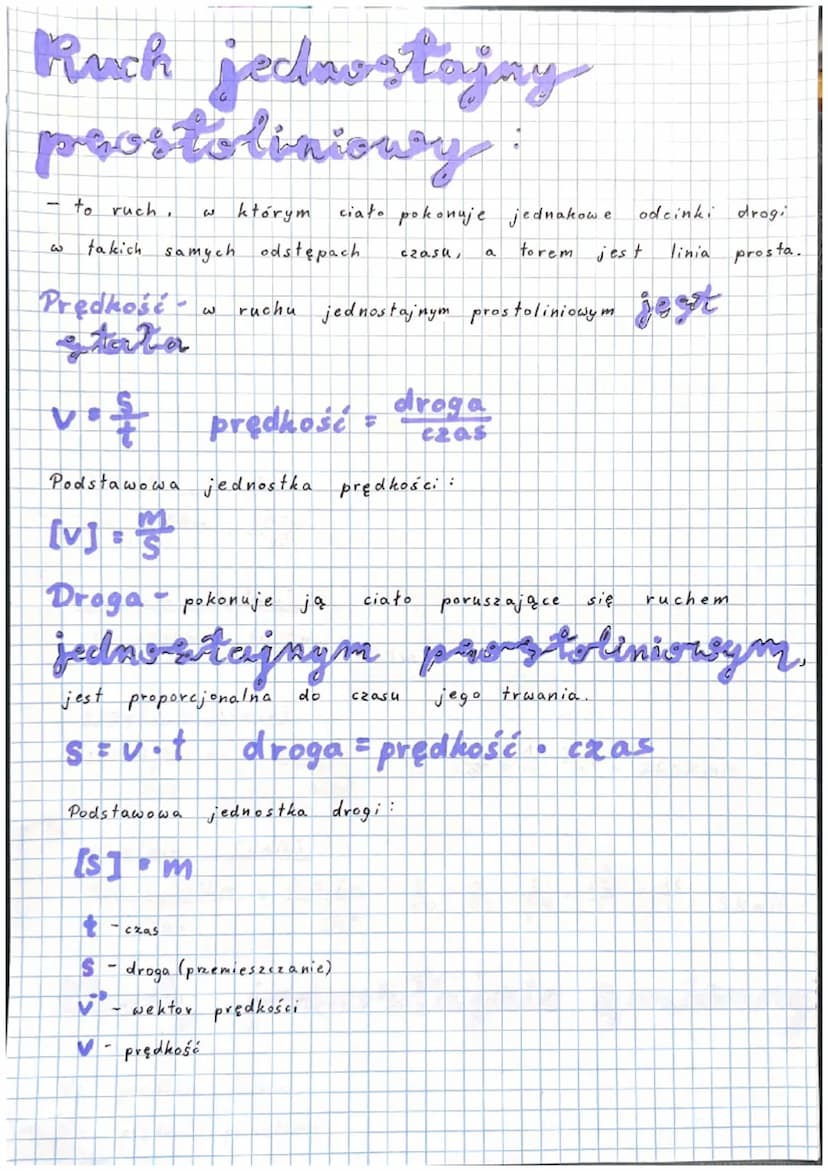 Ruch jednostajny
prostoliniowy :
- to ruch, w którym ciało pokonuje jednakowe odcinki drogi
w takich samych odstępach czasu, a torem jest linia prosta.
Prędkość - w ruchu jednostajnym prostoliniowym jest
stała
v = s/t prędkość = droga/czas
Podstawowa jednostka prędkości :
[v] = m/s
Droga - pokonuje ją ciało poruszające się ruchem
jednostajnym prostoliniowym,
jest proporcjonalna do czasu jego trwania.
s = v · t droga = prędkość · czas
Podstawowa jednostka drogi :
[s] = m
t - czas
s - droga (przemieszczanie)
v→ - wektor prędkości
v - prędkość